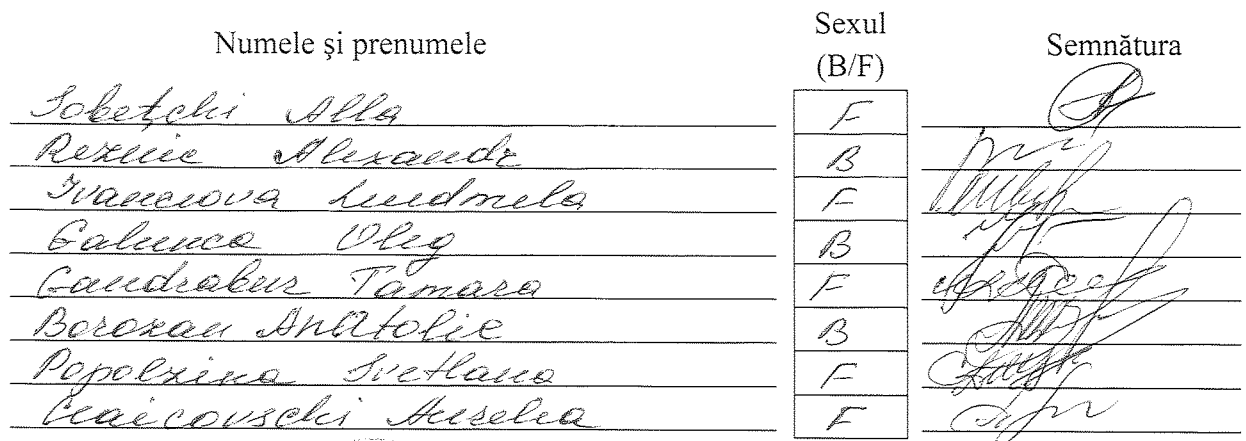 Numele şi prenumele Sexul (B/F) Semnătura
Sobeţchi Alla F
Reznic Alexandr B
Ivanciova Ludmela F
Galunca Oleg B
Gandrabur Tamara F
Borozan Anatolie B
Popolzina Svetlana F
Ceaicovschi F